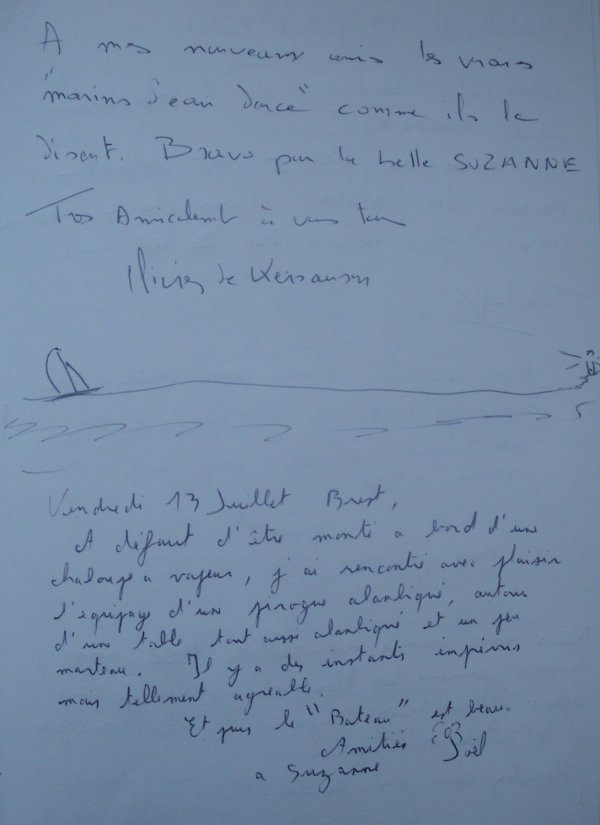 A mes nouveaux amis les vrais
"marins d'eau douce" comme ils le
disent. Bravo pour la belle SUZANNE
Très Amicalement à vous tous
Olivier de Kersauson
Vendredi 13 Juillet Brest,
A défaut d'être monté a bord d'une
chaloupe a vapeur, j'ai rencontré avec plaisir
l'équipage d'une pirogue atlantique, autour
d'une table tout aussi atlantique et un peu
marteau. Il y a des instants imprévus
mais tellement agréable.
Et puis le "Bateau" est beau.
Amitiés Joël
a Suzanne